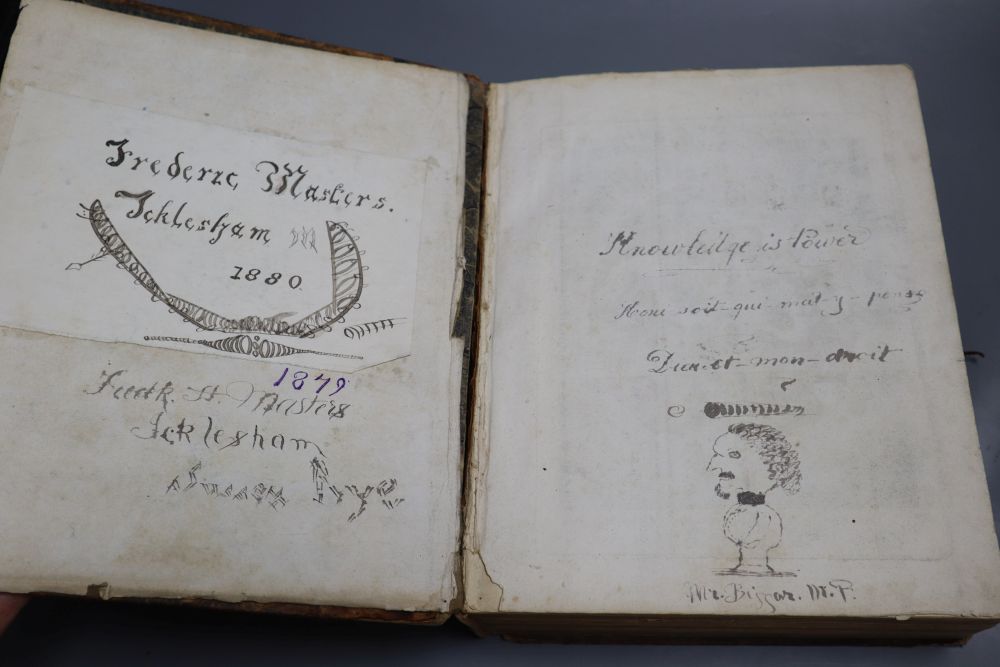 Frederic Masters.
Icklesham
1880
1879
Fredk. H Masters
Icklesham
Sussex Rye
Knowledge is Power
Honi soit-qui-mal-y-pense
Dieu-et-mon-droit
Mr. Biggar. M.P.